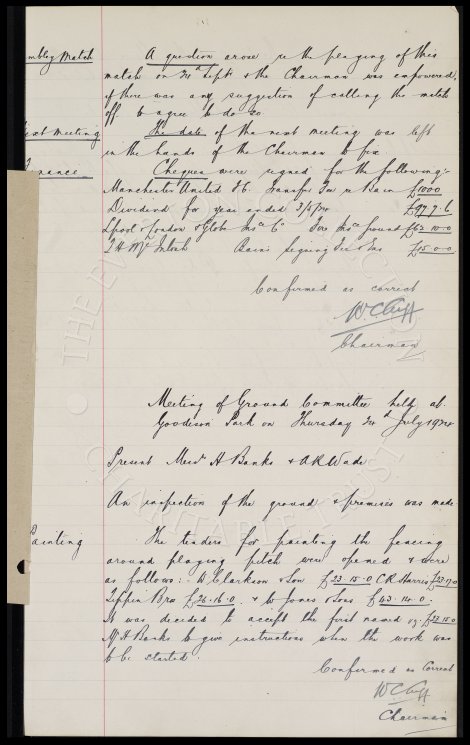 Match
A question arose re the playing of this
match on Sept & the Chairman was empowered,
if there was any suggestion of calling the match
off to agree to do so.
meeting
The date of the next meeting was left
in the hands of the Chairman to fix.
Finance
Cheques were signed for the following:-
Manchester United F.C. Transfer Fee re Bain £1000
Dividend for year ended £97.7.6
Lpool & London & Globe Insce Co Insce ground
J H McIntosh Bain signing Fee £15-0-0
Confirmed as correct
W.C. Cuff
Chairman
Meeting of Ground Committee held at
Goodison Park on Thursday July 1924
Present Messrs H Banks & A R Wade
An inspection of the ground & premises was made
Painting
The tenders for painting the fencing
around playing pitch were opened & were
as follows:- Clarkson & Son £23-15-0 C R Harris
Tippin Bros £26-16-0. & W Jones & Sons
It was decided to accept the first named viz £23-15-0
Mr H Banks to give instructions when the work was
to be started.
Confirmed as Correct
W C Cuff
Chairman
THE EVERTON COLLECTION
CHARITABLE TRUST